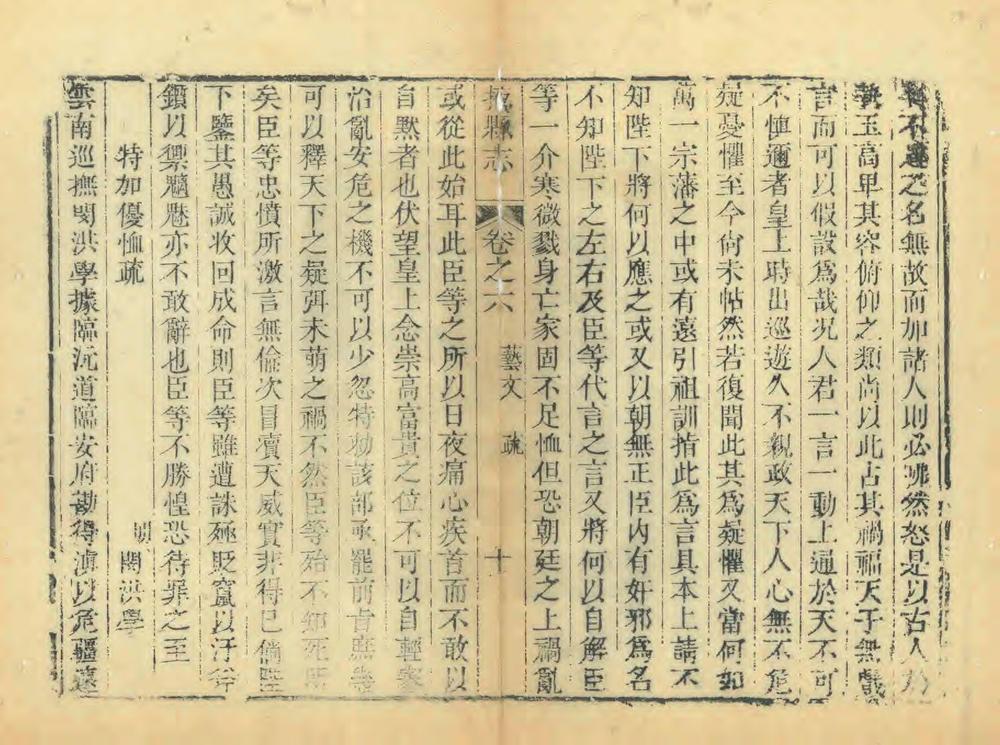 不之名無故而加諸人則必咈然怒是以古人於
執玉高卑其容俯仰之類尚以此占其禍福天子無戲
言而可以假設爲哉況人君一言一動上通於天不可
不慎邇者皇上時出巡遊久不親政天下人心無不危
疑憂懼至今尚未帖然若復聞此其爲疑懼又當何如
萬一宗藩之中或有遠引祖訓指此爲言具本上請不
知陛下將何以應之或又以朝無正臣內有奸邪爲名
不知陛下之左右及臣等代言之言又將何以自解臣
等一介寒微戮身亡家固不足恤但恐朝廷之上禍亂
掖縣志 卷之六 藝文 疏 十
或從此始耳此臣等之所以日夜痛心疾首而不敢以
自默者也伏望皇上念崇高富貴之位不可以自輕
治亂安危之機不可以少忽特勑該部亟罷前旨庶幾
可以釋天下之疑弭未萌之禍不然臣等殆不知死所
矣臣等忠憤所激言無倫次冒瀆天威實非得已倘陛
下鑒其愚誠收回成命則臣等雖遭誅殛貶竄以汙斧
鑕以禦魑魅亦不敢辭也臣等不勝惶恐待罪之至
特加優恤疏 明 閔洪學
雲南巡撫閔洪學據臨沅道臨安府勘得滇以危疆遠